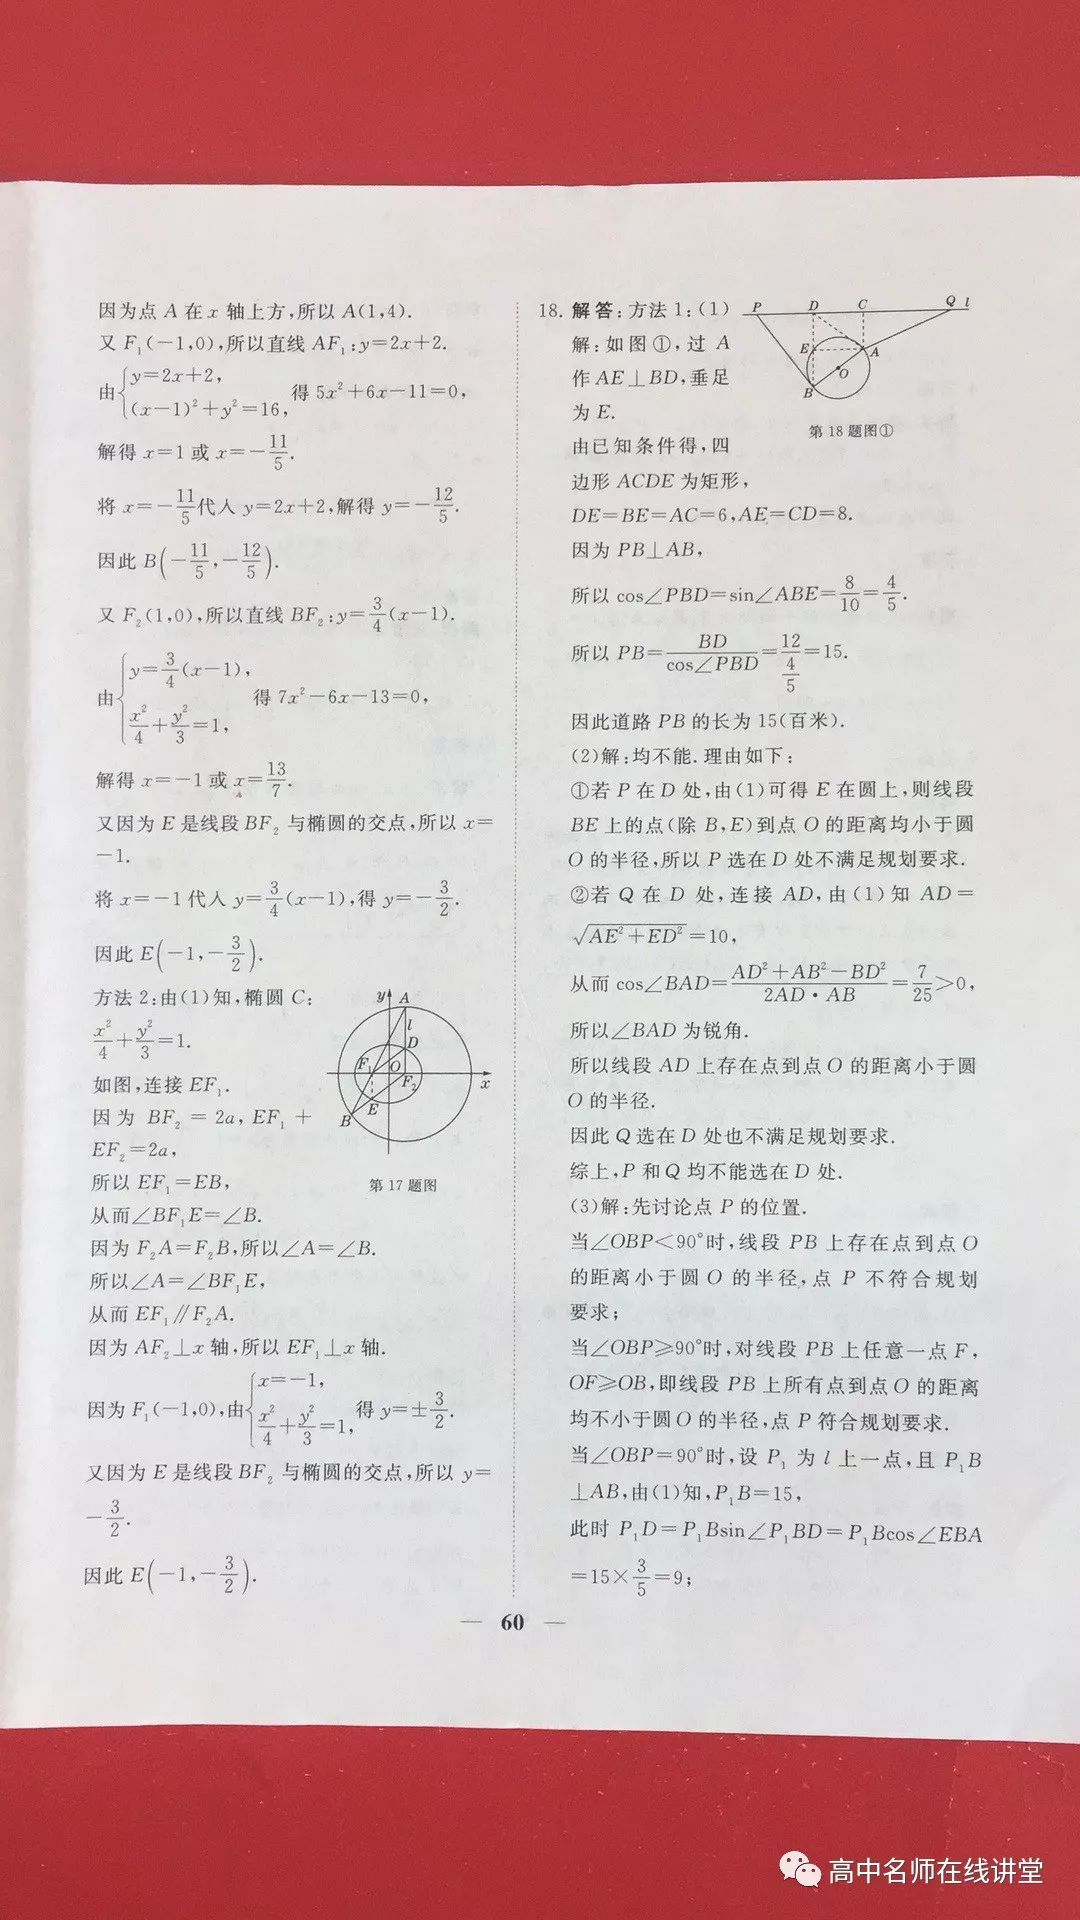 因为点 A 在 x 轴上方,所以 A(1,4).
又 F₁(−1,0),所以直线 AF₁:y=2x+2.
由{y=2x+2, (x−1)²+y²=16, 得 5x²+6x−11=0,
解得 x=1 或 x=−11/5.
将 x=−11/5代入 y=2x+2,解得 y=−12/5.
因此 B(−11/5,−12/5).
又 F₂(1,0),所以直线 BF₂:y=3/4(x−1).
由{y=3/4(x−1), x²/4+y²/3=1, 得 7x²−6x−13=0,
解得 x=−1 或 x=13/7.
又因为 E 是线段 BF₂ 与椭圆的交点,所以 x=
−1.
将 x=−1 代入 y=3/4(x−1),得 y=−3/2.
因此 E(−1,−3/2).
方法 2:由(1)知,椭圆 C:
x²/4+y²/3=1.
如图,连接 EF₁.
因为 BF₂=2a,EF₁+
EF₂=2a,
所以 EF₁=EB,
从而∠BF₁E=∠B.
因为 F₂A=F₂B,所以∠A=∠B.
所以∠A=∠BF₁E,
从而 EF₁∥F₂A.
因为 AF₂⊥x 轴,所以 EF₁⊥x 轴.
因为 F₁(−1,0),由{x=−1, x²/4+y²/3=1, 得 y=±3/2.
又因为 E 是线段 BF₂ 与椭圆的交点,所以 y=
−3/2.
因此 E(−1,−3/2).
y A
l
D
F₁ O
F₂ x
E
B
第 17 题图
18. 解答:方法 1:(1)
解:如图①,过 A
作 AE⊥BD,垂足
为 E.
由已知条件得,四
边形 ACDE 为矩形,
DE=BE=AC=6,AE=CD=8.
因为 PB⊥AB,
所以 cos∠PBD=sin∠ABE=8/10=4/5.
所以 PB=BD/cos∠PBD=12/(4/5)=15.
因此道路 PB 的长为 15(百米).
(2)解:均不能.理由如下:
①若 P 在 D 处,由(1)可得 E 在圆上,则线段
BE 上的点(除 B,E)到点 O 的距离均小于圆
O 的半径,所以 P 选在 D 处不满足规划要求.
②若 Q 在 D 处,连接 AD,由(1)知 AD=
√(AE²+ED²)=10,
从而 cos∠BAD=(AD²+AB²−BD²)/(2AD·AB)=7/25>0,
所以∠BAD 为锐角.
所以线段 AD 上存在点到点 O 的距离小于圆
O 的半径.
因此 Q 选在 D 处也不满足规划要求.
综上,P 和 Q 均不能选在 D 处.
(3)解:先讨论点 P 的位置.
当∠OBP<90°时,线段 PB 上存在点到点 O
的距离小于圆 O 的半径,点 P 不符合规划
要求;
当∠OBP⩾90°时,对线段 PB 上任意一点 F,
OF⩾OB,即线段 PB 上所有点到点 O 的距离
均不小于圆 O 的半径,点 P 符合规划要求.
当∠OBP=90°时,设 P₁ 为 l 上一点,且 P₁B
⊥AB,由(1)知,P₁B=15,
此时 P₁D=P₁Bsin∠P₁BD=P₁Bcos∠EBA
=15×3/5=9;
P D C Q l
E A
O
B
第 18 题图①
— 60 —
高中名师在线讲堂